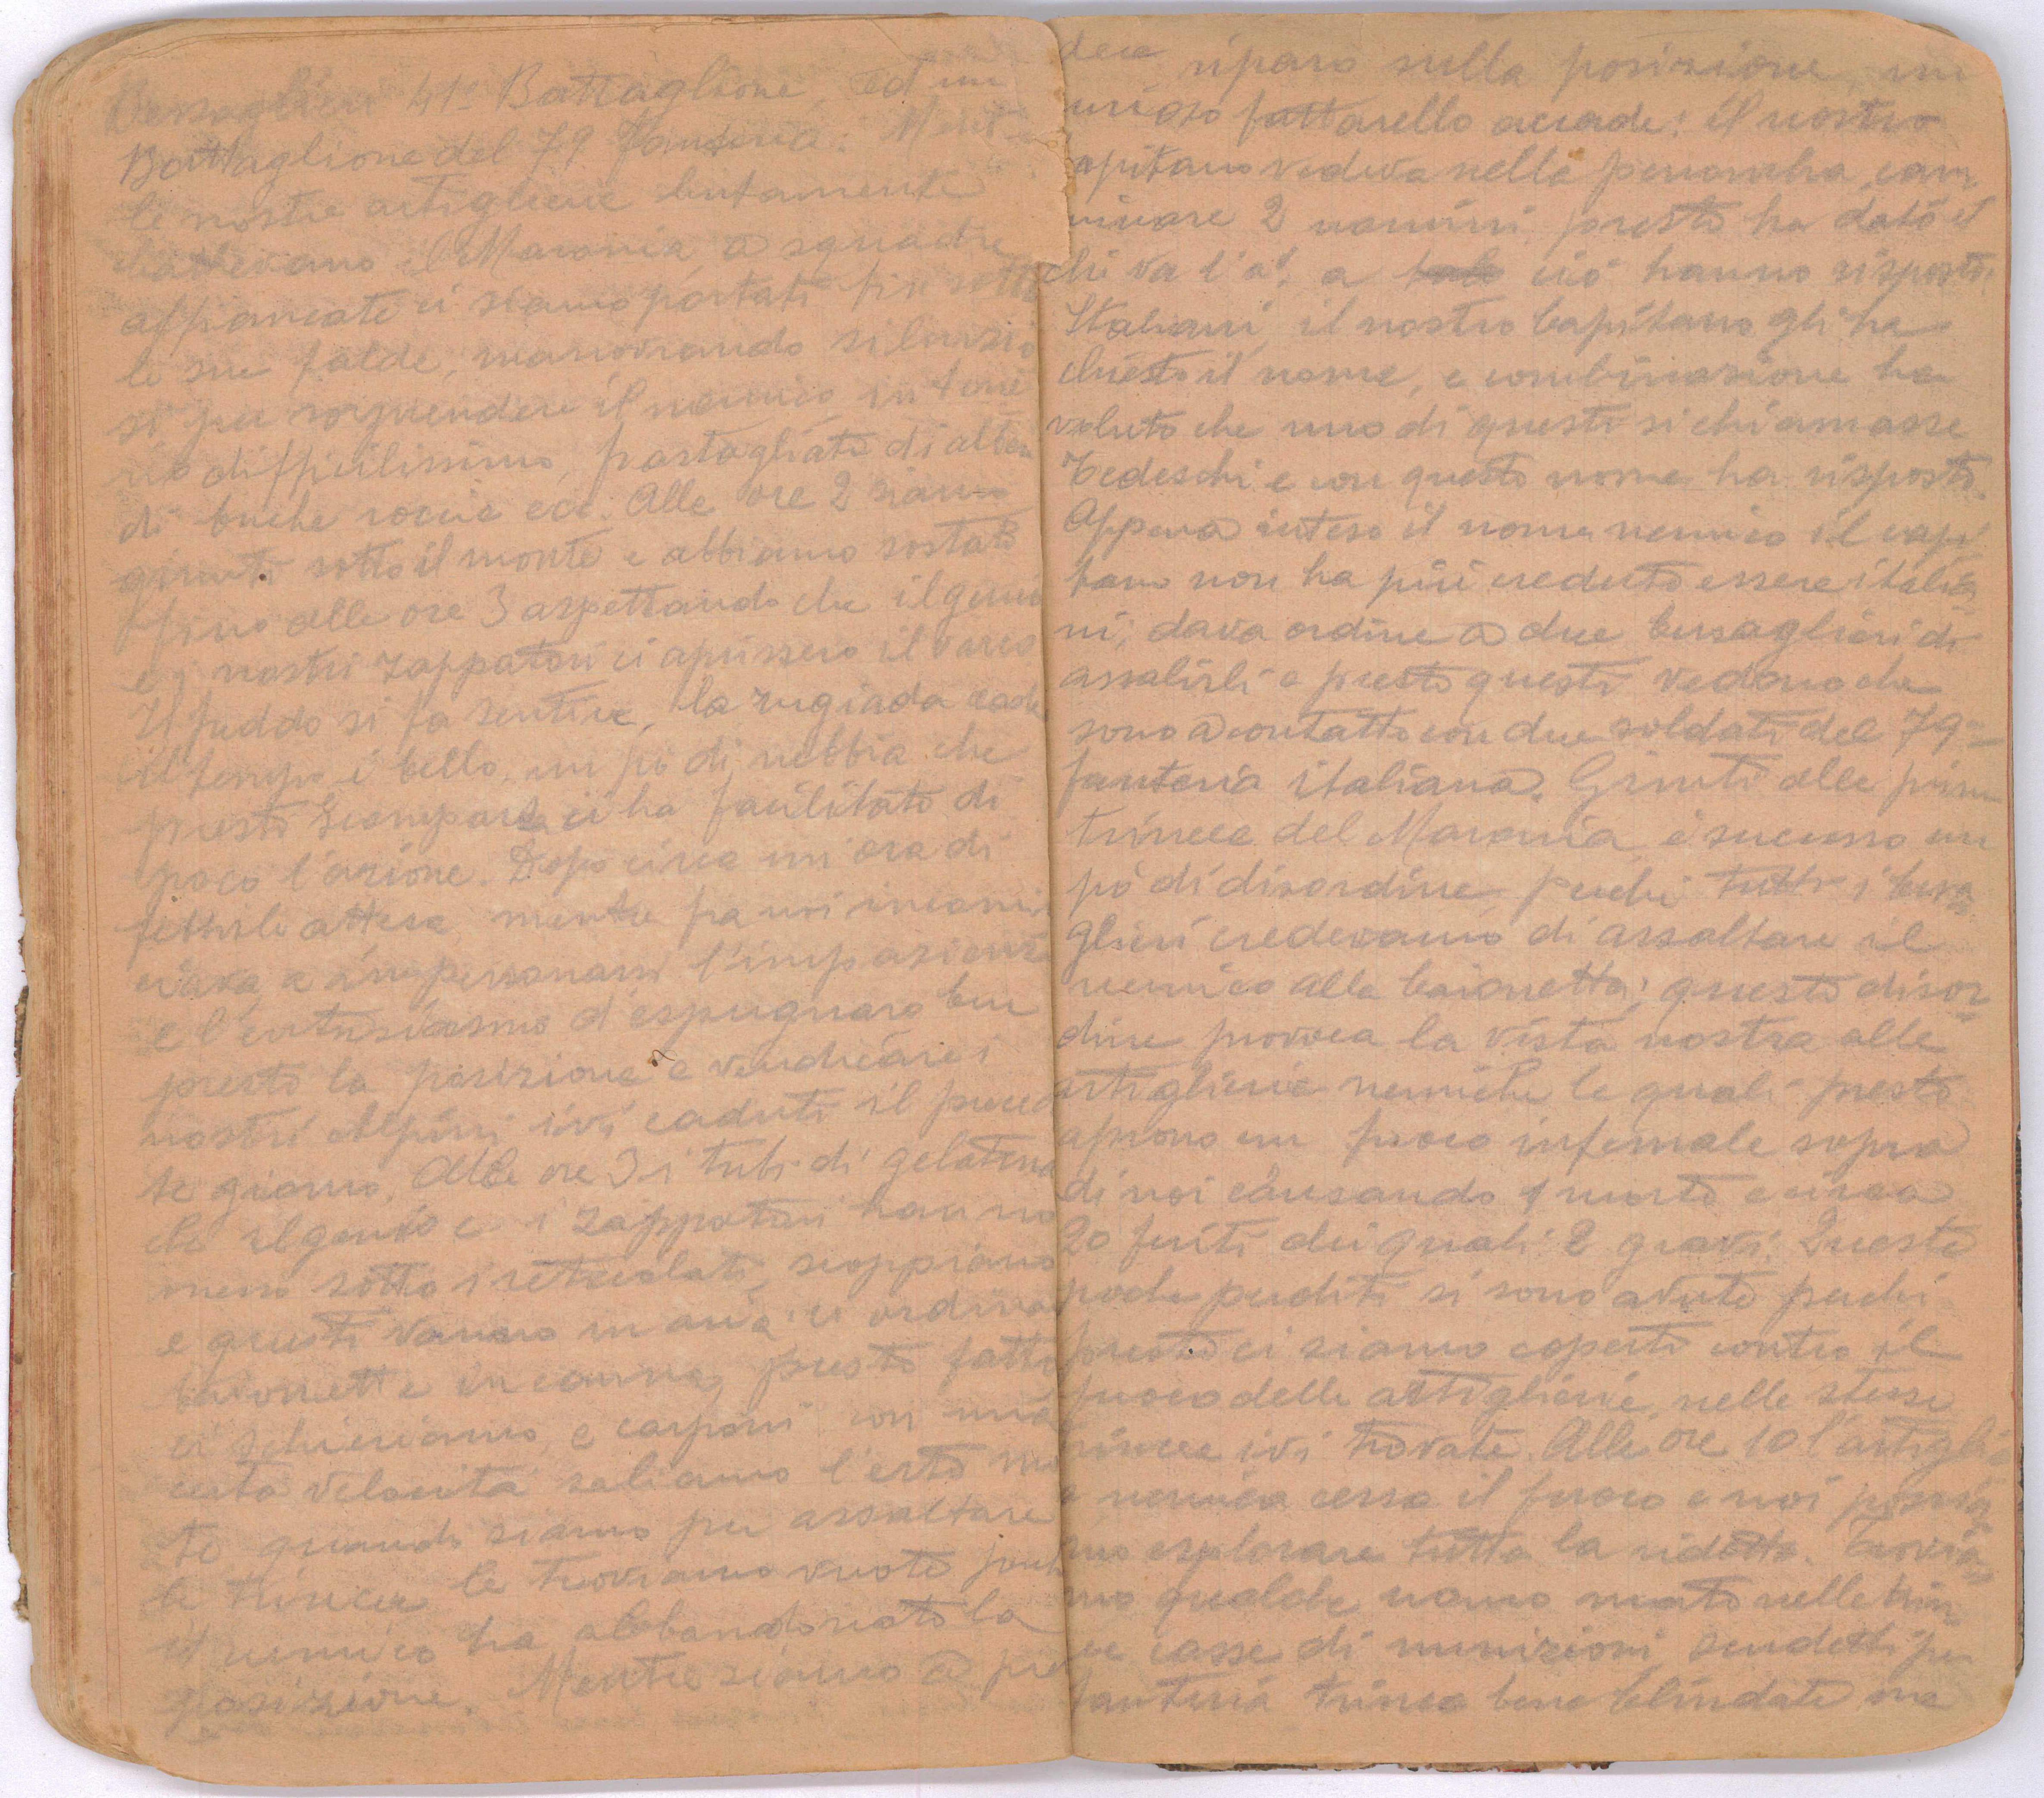 Bersaglieri 41° Battaglione, ed un
Battaglione del 79 Fanteria. Mentre
le nostre artiglierie lentamente
battevano il Maronia a squadre
affiancate ci siamo portati fin sotto
le sue falde, manovrando silenzio
si per sorprendere il nemico in terre
no difficilissimo, frastagliato di alberi
di buche roccie ecc. Alle ore 2 siamo
giunti sotto il monte e abbiamo sostato
fino alle ore 3 aspettando che il genio
e i nostri zappatori ci aprissero il varco.
Il freddo si fa sentire, la rugiada cade
il tempo è bello, un pò di nebbia che
presto scomparsa ci ha facilitato di
poco l'azione. Dopo circa un'ora di
febbrile attesa mentre fra noi incomin
ciava a impersonarsi l'impazienza
e l'entusiasmo d'espugnare ben
presto la posizione e vendicare i
nostri Alpini ivi caduti il preceden
te giorno. Alle ore 3 i tubi di gelatina
che il genio e i zappatori hanno
messo sotto i reticolati, scoppiano
e questi vanno in aria: ci ordinano
baionette in canna, presto fatto
ci schieriamo, e carponi con una
certa velocità saliamo l'erto mon
te quando siamo per assaltare
le trincee le troviamo vuote perchè
il nemico ha abbandonato la
posizione. Mentre siamo a pren
dere riparo sulla posizione, un
curioso fattarello accade: il nostro
capitano vedeva nella penombra cam
minare 2 uomini, presto ha dato il
chi va l'à! a ciò hanno risposto:
Italiani, il nostro Capitano gli ha
chiesto il nome, e combinazione ha
voluto che uno di questi si chiamasse
Tedeschi e con questo nome ha risposto.
Appena inteso il nome nemico il capi
tano non ha più creduto essere italia
ni; dava ordine a due bersaglieri di
assalirli e presto questi vedono che
sono a contatto con due soldati del 79°
fanteria italiana. Giunti alle prime
trincee del Maronia è successo un
pò di disordine perchè tutti i bersa
glieri credevamo di assaltare il
nemico alla baionetta; questo disor
dine provoca la vista nostra alle
artiglierie nemiche le quali presto
aprono un fuoco infernale sopra
di noi causando 1 morto e circa
20 feriti dei quali 2 gravi. Queste
poche perdite si sono avute perchè
presto ci siamo coperti contro il
fuoco delle artiglierie, nelle stesse
trincee ivi trovate. Alle ore 10 l'artiglie
ria nemica cessa il fuoco e noi possia
mo esplorare tutta la ridotta. Trovia
mo qualche uomo morto nelle trin
cee casse di munizioni, scudetti per
fanteria trincee bene blindate ma